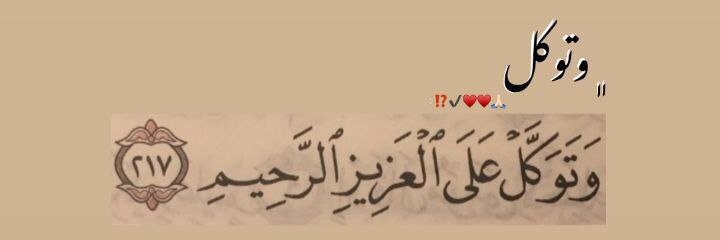 " وتوكل
🙏🏻❤️❤️✔️⁉️ :
وَتَوَكَّلْ عَلَى ٱلْعَزِيزِ ٱلرَّحِيمِ ٢١٧